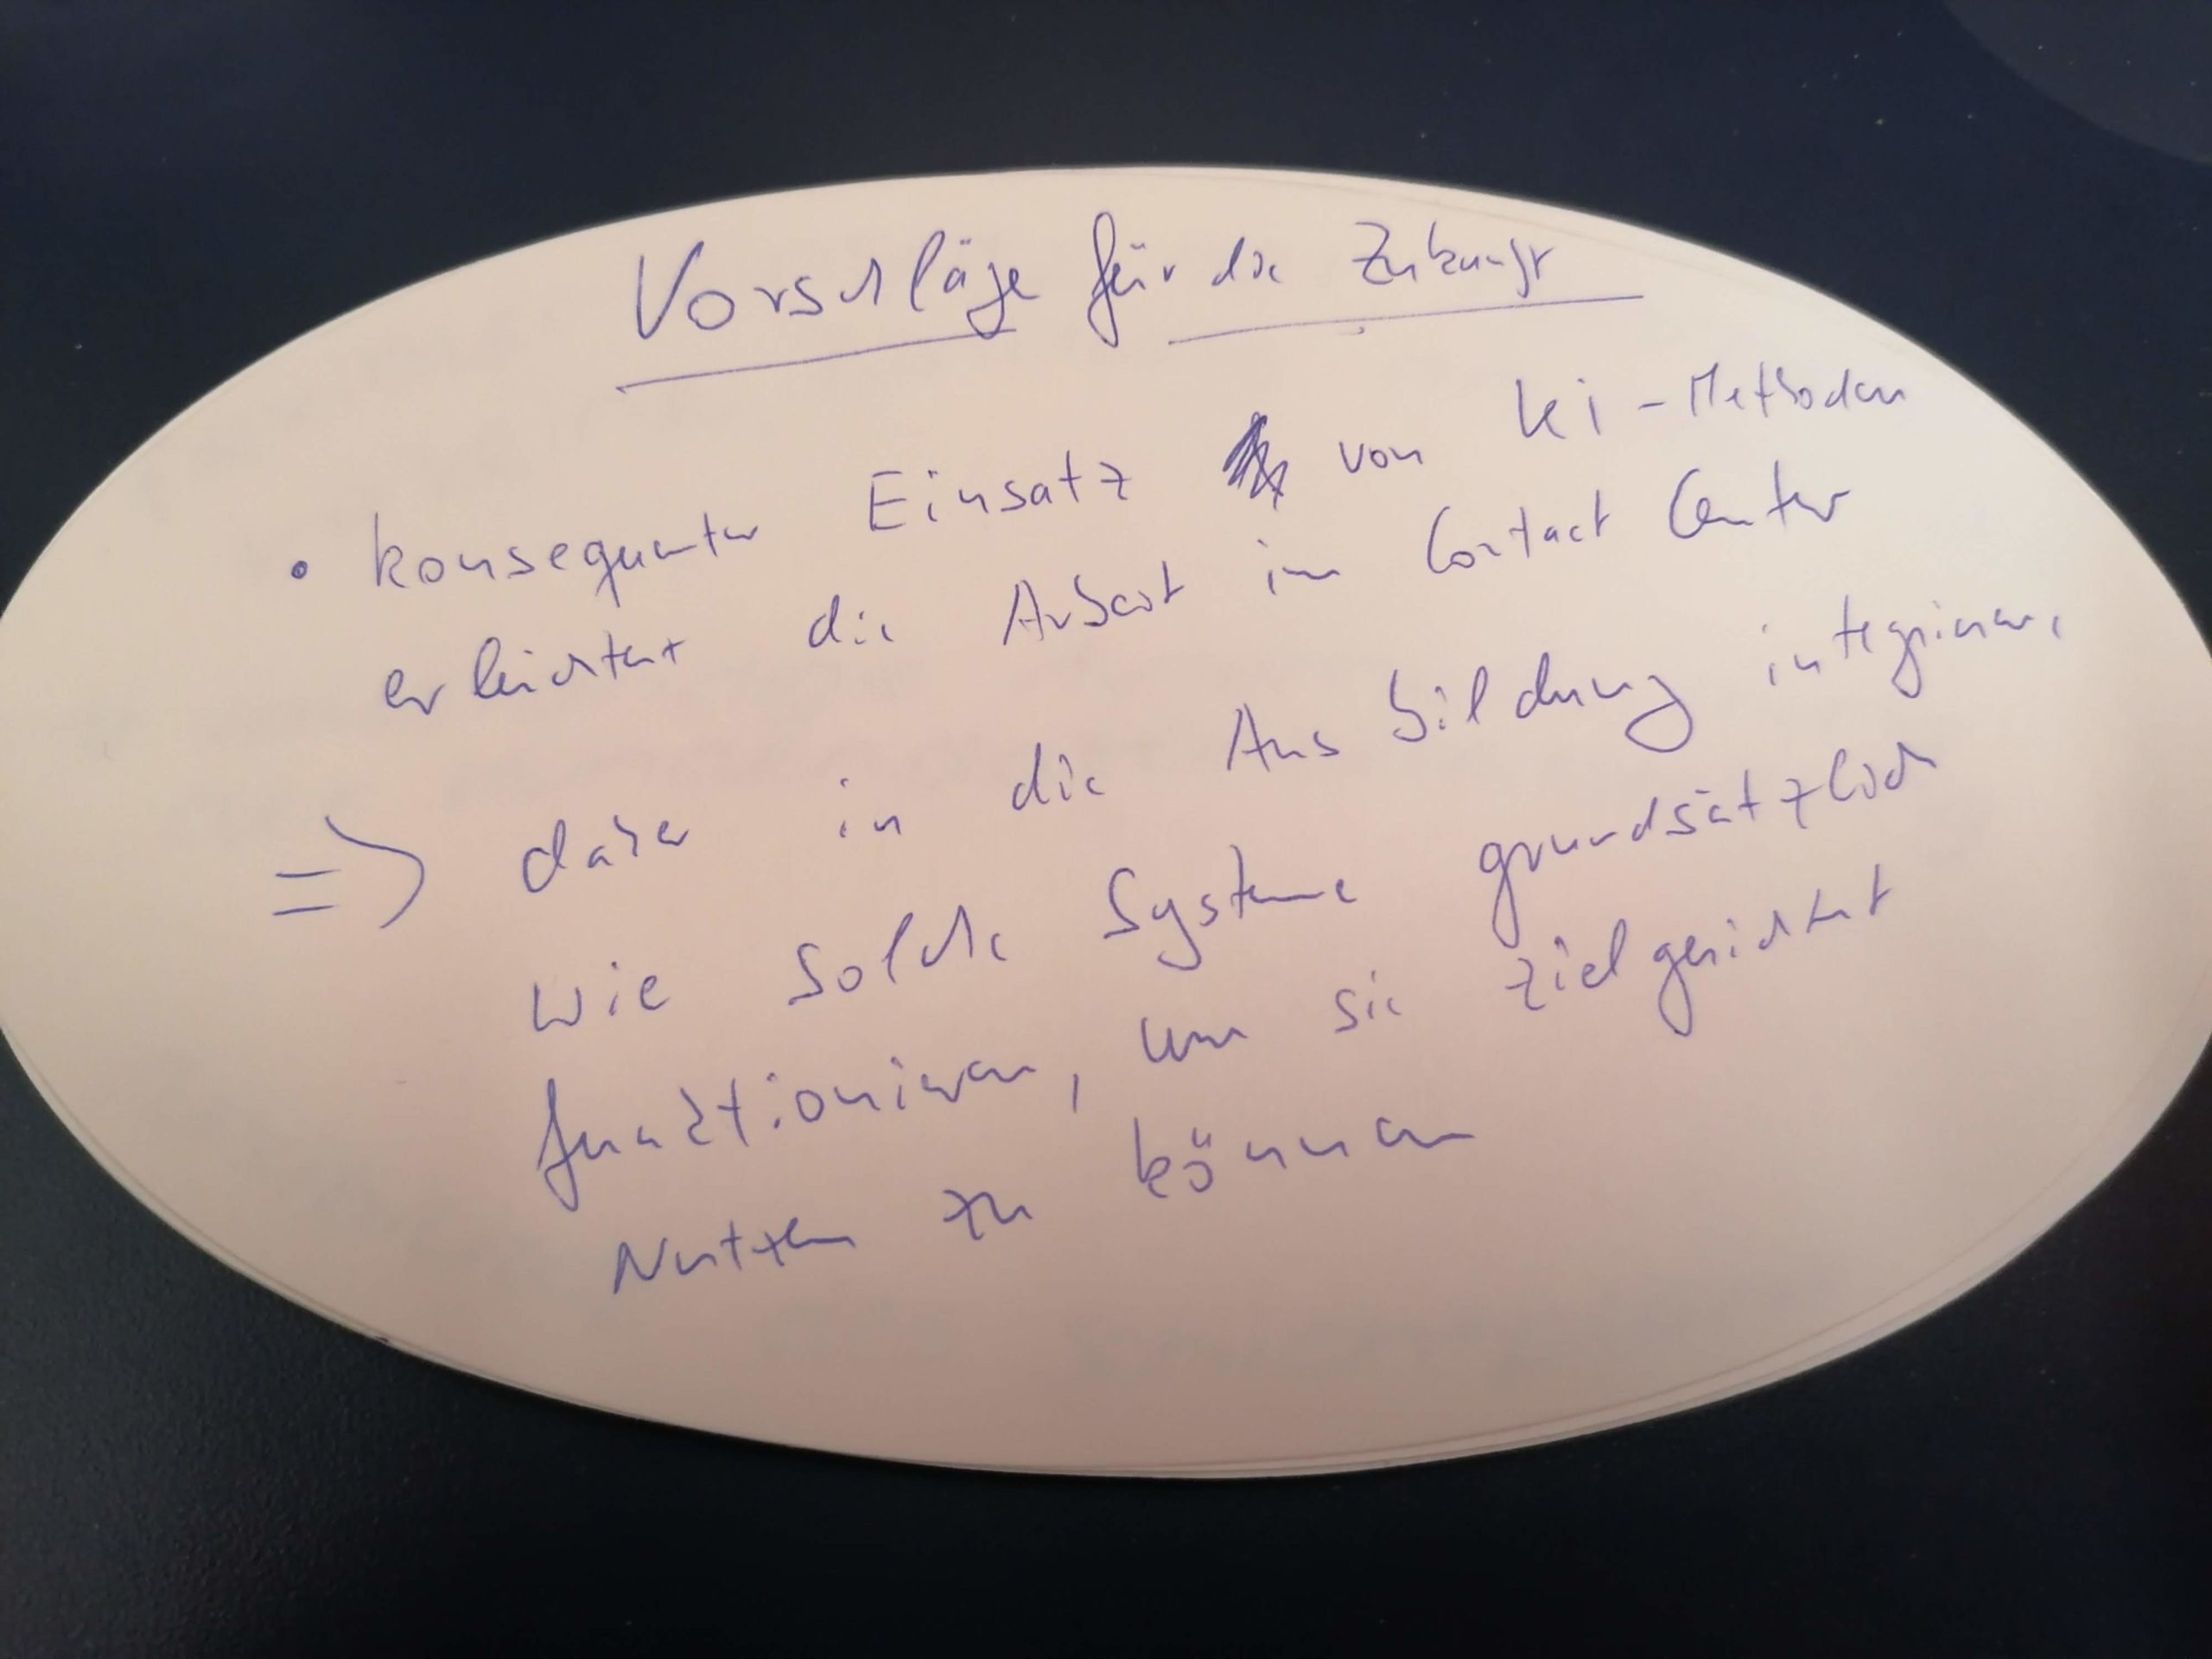 Vorschläge für die Zukunft
• konsequenter Einsatz von KI-Methoden
erleichtert die Arbeit im Contact Center
=> daher in die Ausbildung integrieren,
wie solche Systeme grundsätzlich
funktionieren, um sie zielgerichtet
Nutzen zu können